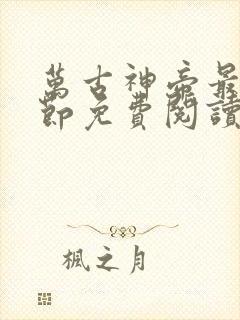 萬古神帝最
節免費閱讀
楓之月